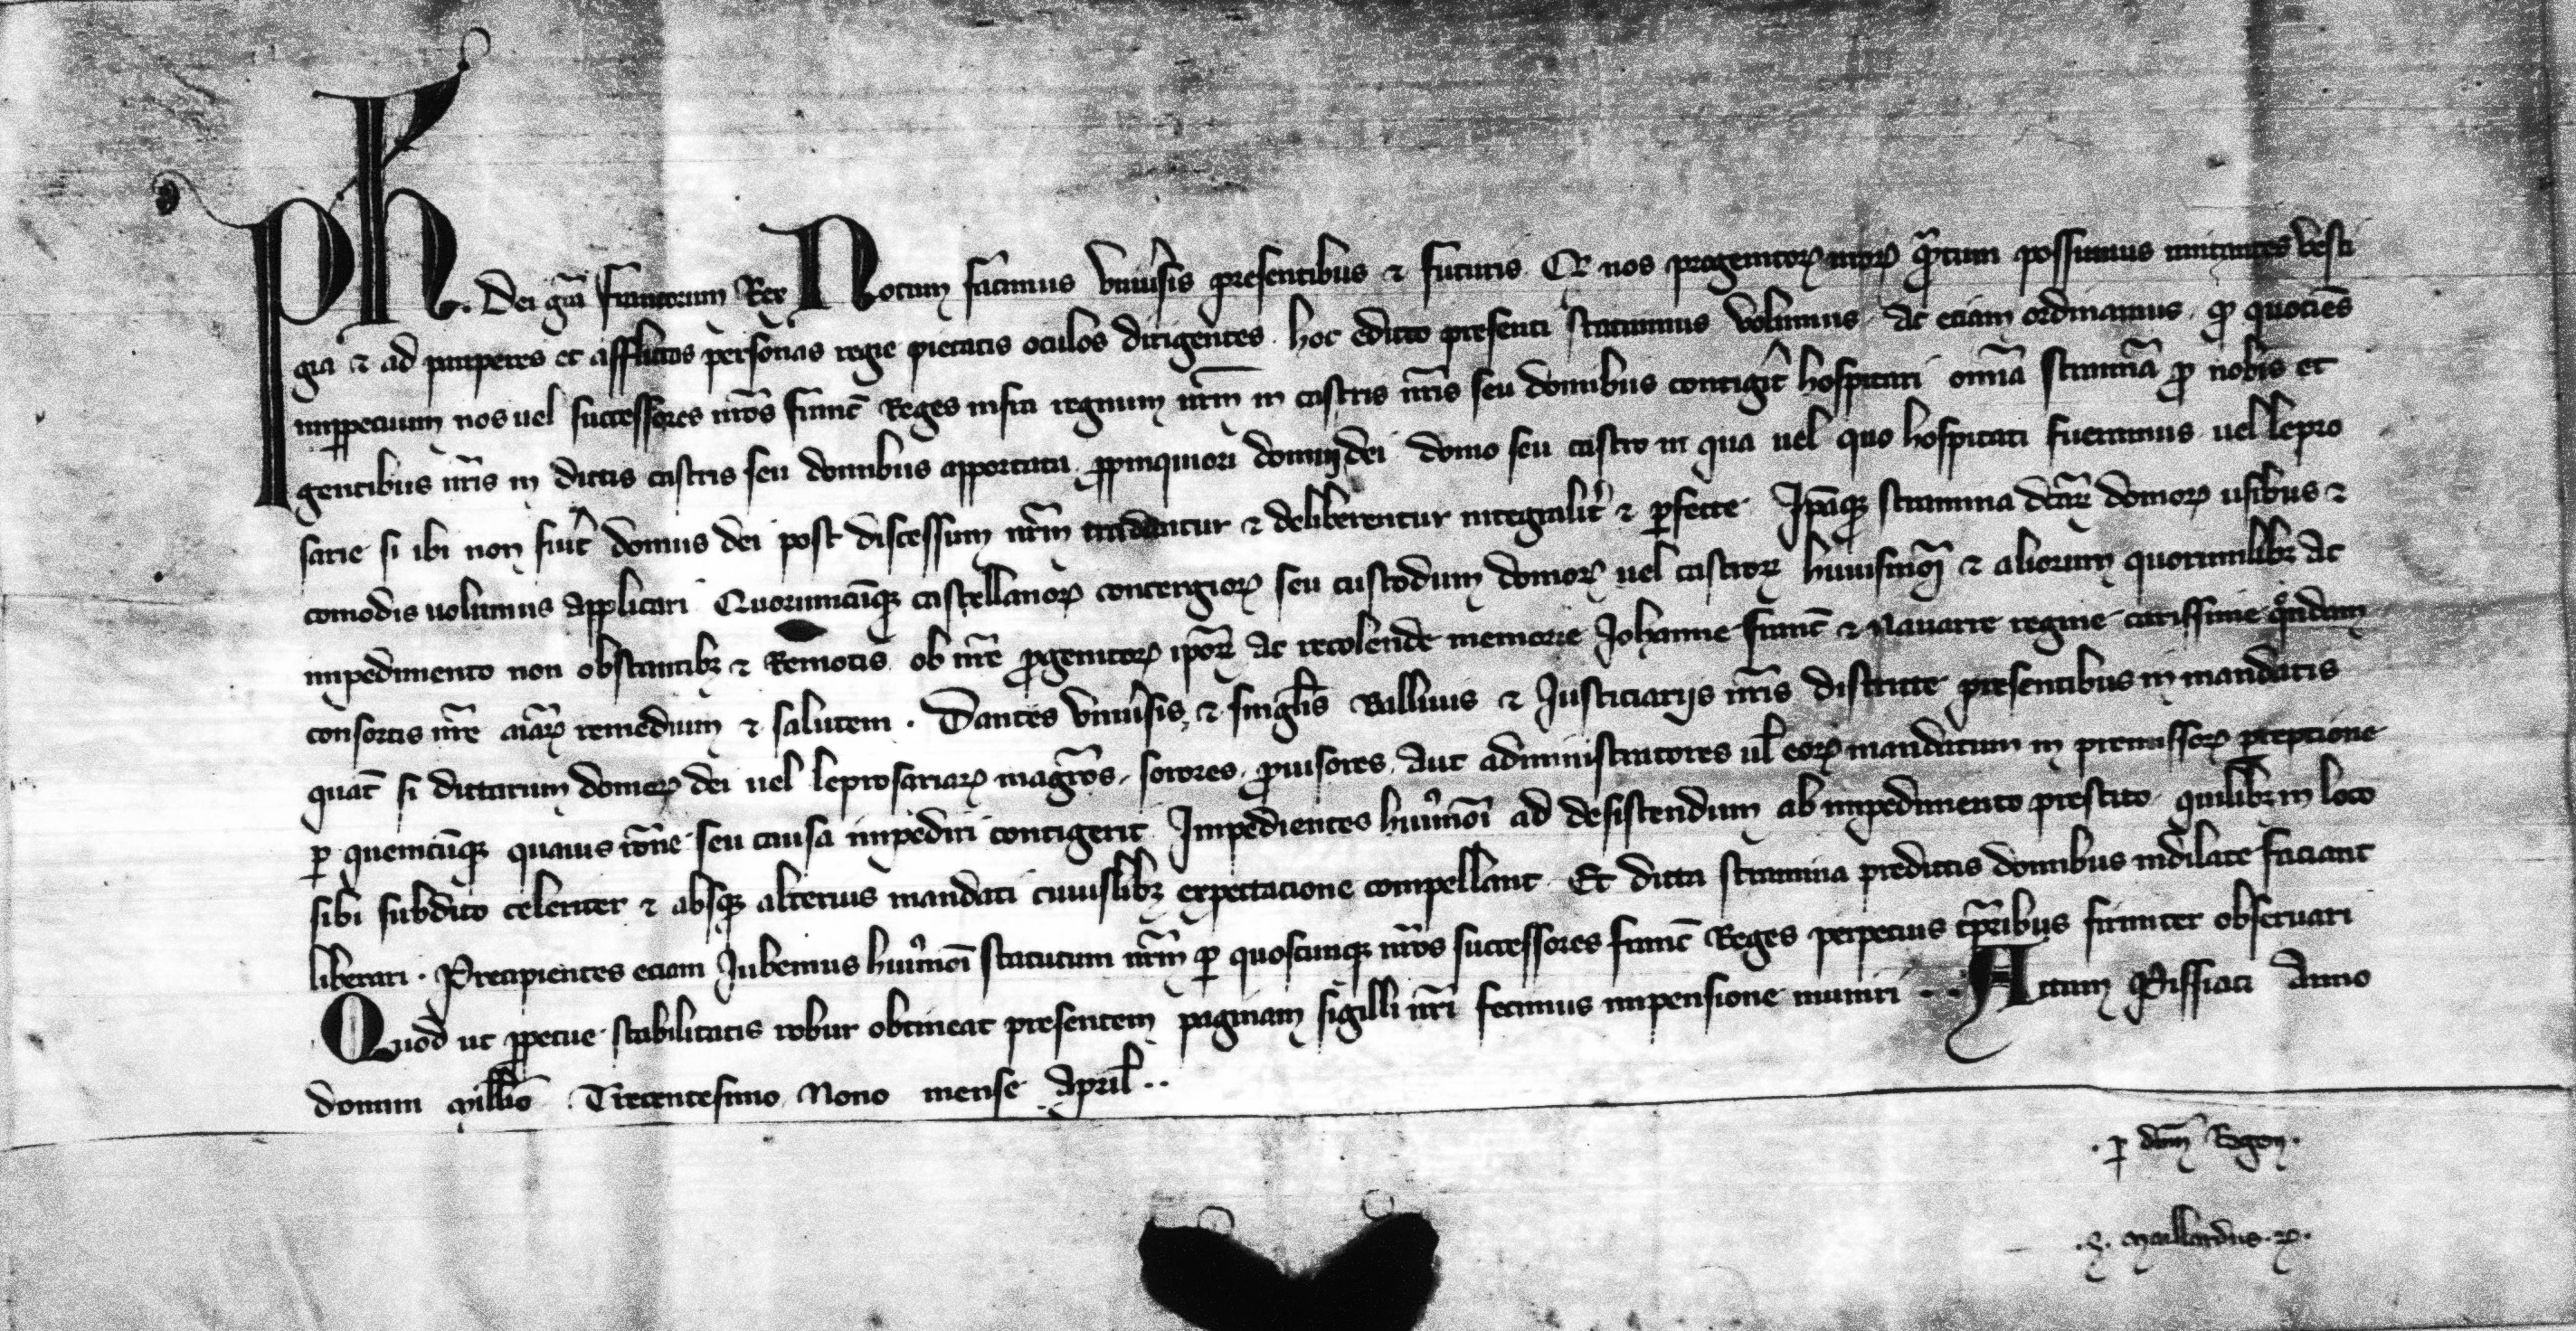 Ph. Dei gr̃a Francorum Rex Notum facimus vniu̾sis presentibus ⁊ futuris Qđ nos progenitoꝝ nr̃oꝝ q̃ntum possumus imitantes vesti
gia ⁊ ad pauperes et afflictas personas regie pietatis oculos dirigentes. hoc edicto presenti statuimus volumus ac eciam ordinamus. qđ quociẽs
imꝑpetuum nos uel successores nr̃os Franc̃ Reges infra regnum nr̃m in castris nr̃is seu domibus contig̾it hospitari omĩa stramĩa ꝓ nobis et
gentibus nr̃is in dictis castris seu domibus apportata ꝓpinquiori domui dei domo seu castro in qua uel quo hospitati fuerimus uel lepro
sarie si ibi non fu̾it domus dei post discessum nr̃m tradantur ⁊ deliberentur integralit̾ ⁊ ꝑfecte. Ip̃aqꝫ stramina dc̃aꝝ domoꝝ usibus ⁊
comodis uolumus applicari Quorumcũqꝫ castellanoꝝ concergioꝝ seu custodum domoꝝ uel castroꝝ huiusmõi ⁊ aliorum quorumlibꝫ ac
impedimento non obstantibꝫ ⁊ Remotis ob nr̃e ꝓgenitoꝝ ip̃oꝝ ac recolende memorie Johanne Franc̃ ⁊ Nauarre regine carissime q̊ndam
consortis nr̃e aĩaꝝ remedium ⁊ salutem. Dantes vniu̾sis ⁊ singl̃is Balliuis ⁊ Justiciarijs nr̃is districte presentibus in mandatis
quat̃ si dictarum domoꝝ dei uel leprosariaꝝ magr̃os, sorores, ꝓuisores, aut administratores ul̃ eoꝝ mandatum in premissoꝝ ꝑceptione
ꝑ quemcũqꝫ quauis rõne seu causa impediri contigerit Impedientes huiꝰmõi ad desistendum ab impedimento prestito quilibꝫ in loco
sibi subdito celeriter ⁊ absqꝫ alterius mandati cuiuslibꝫ expectacione compellant Et dicta stramina predictis domibus indilate faciant
liberari. Precipientes eciam Jubemus huiꝰmõi statutum nr̃m ꝑ quoscunqꝫ nr̃os successores Franc̃ Reges perpetuis tp̃oribus firmiter obseruari
Quod ut ꝑpetue stabilitatis robur obtineat presentem paginam sigilli nr̃i fecimus impensione muniri.. Actum Pissiaci Anno
domini Mill̃io Trecentesimo Nono mense April̃..
.ꝑ dñm Regem.
. Maillardus.